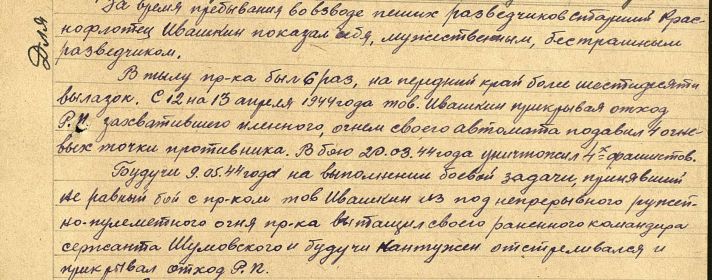 Для
За время пребывания во взводе пеших разведчиков старший Крас-
нофлотец Ивашкин показал себя, мужественным, бесстрашным
разведчиком.
В тылу пр-ка был 6 раз, на передний край более шестидесяти
вылазок. С 12 на 13 апреля 1944 года тов. Ивашкин прикрывая отход
Р.П. захватившего пленного, огнем своего автомата подавил 4 огне-
вых точки противника. В бою 20.03.44 года уничтожил 4х фашистов.
Будучи 9.05.44 года на выполнении боевой задачи, принявший
не равный бой с пр-ком тов Ивашкин из под непрерывного ружей-
но-пулеметного огня пр-ка вытащил своего раненного командира
сержанта Шумовского и будучи контужен отстреливался и
прикрывал отход Р.П.